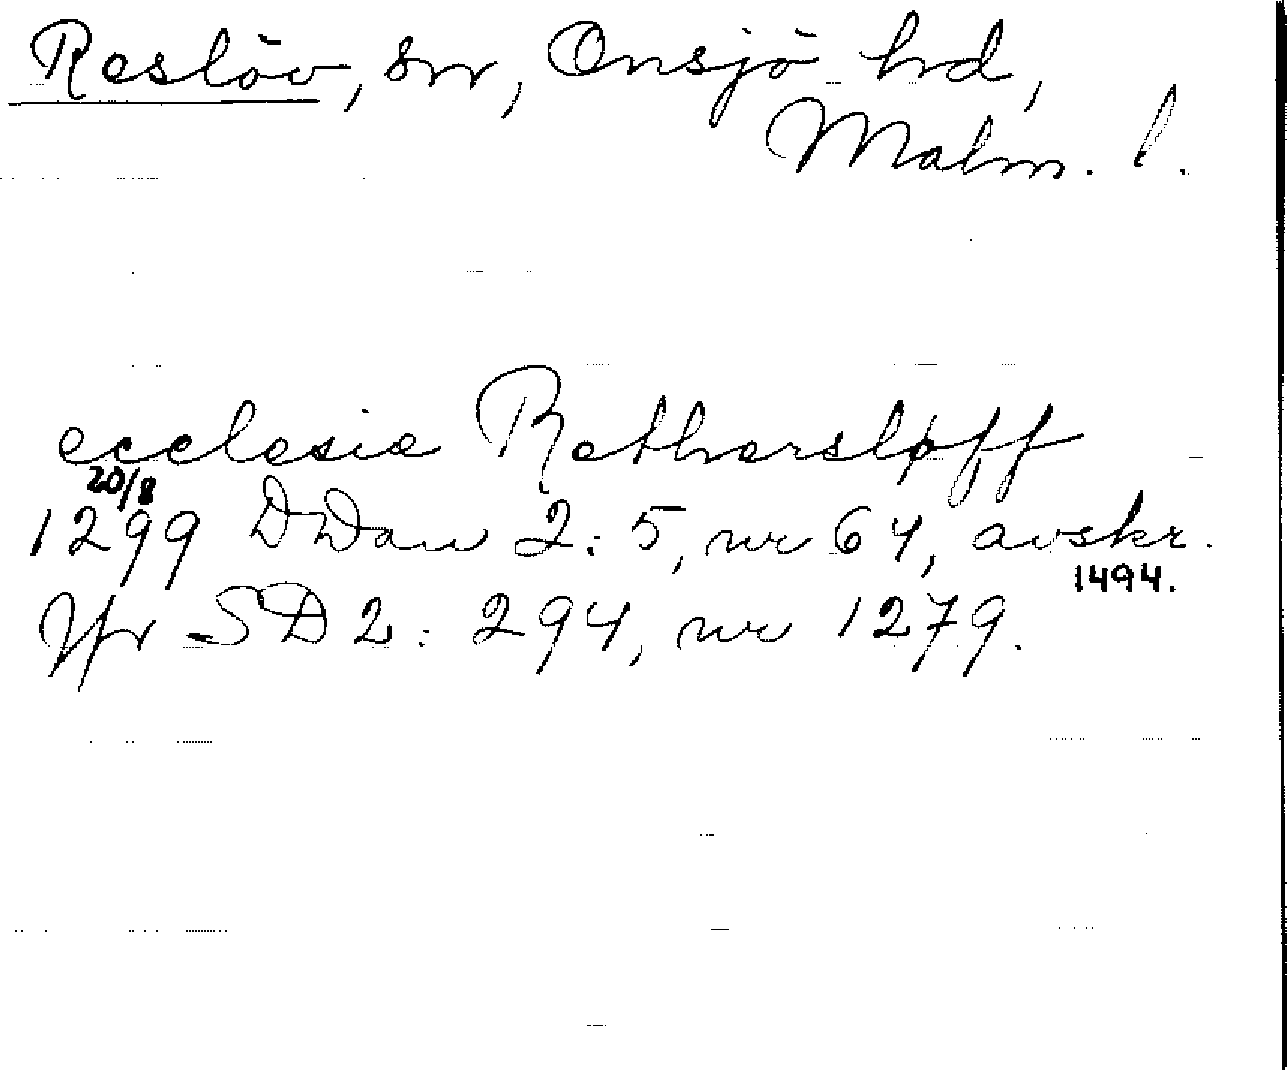 Reslöv, sn, Onsjö hd,
Malm. l.
ecclesie Rethersløff
20/8
1299 DDan 2: 5, nr 64, avskr.
1494.
Jfr SD 2: 294, nr 1279.